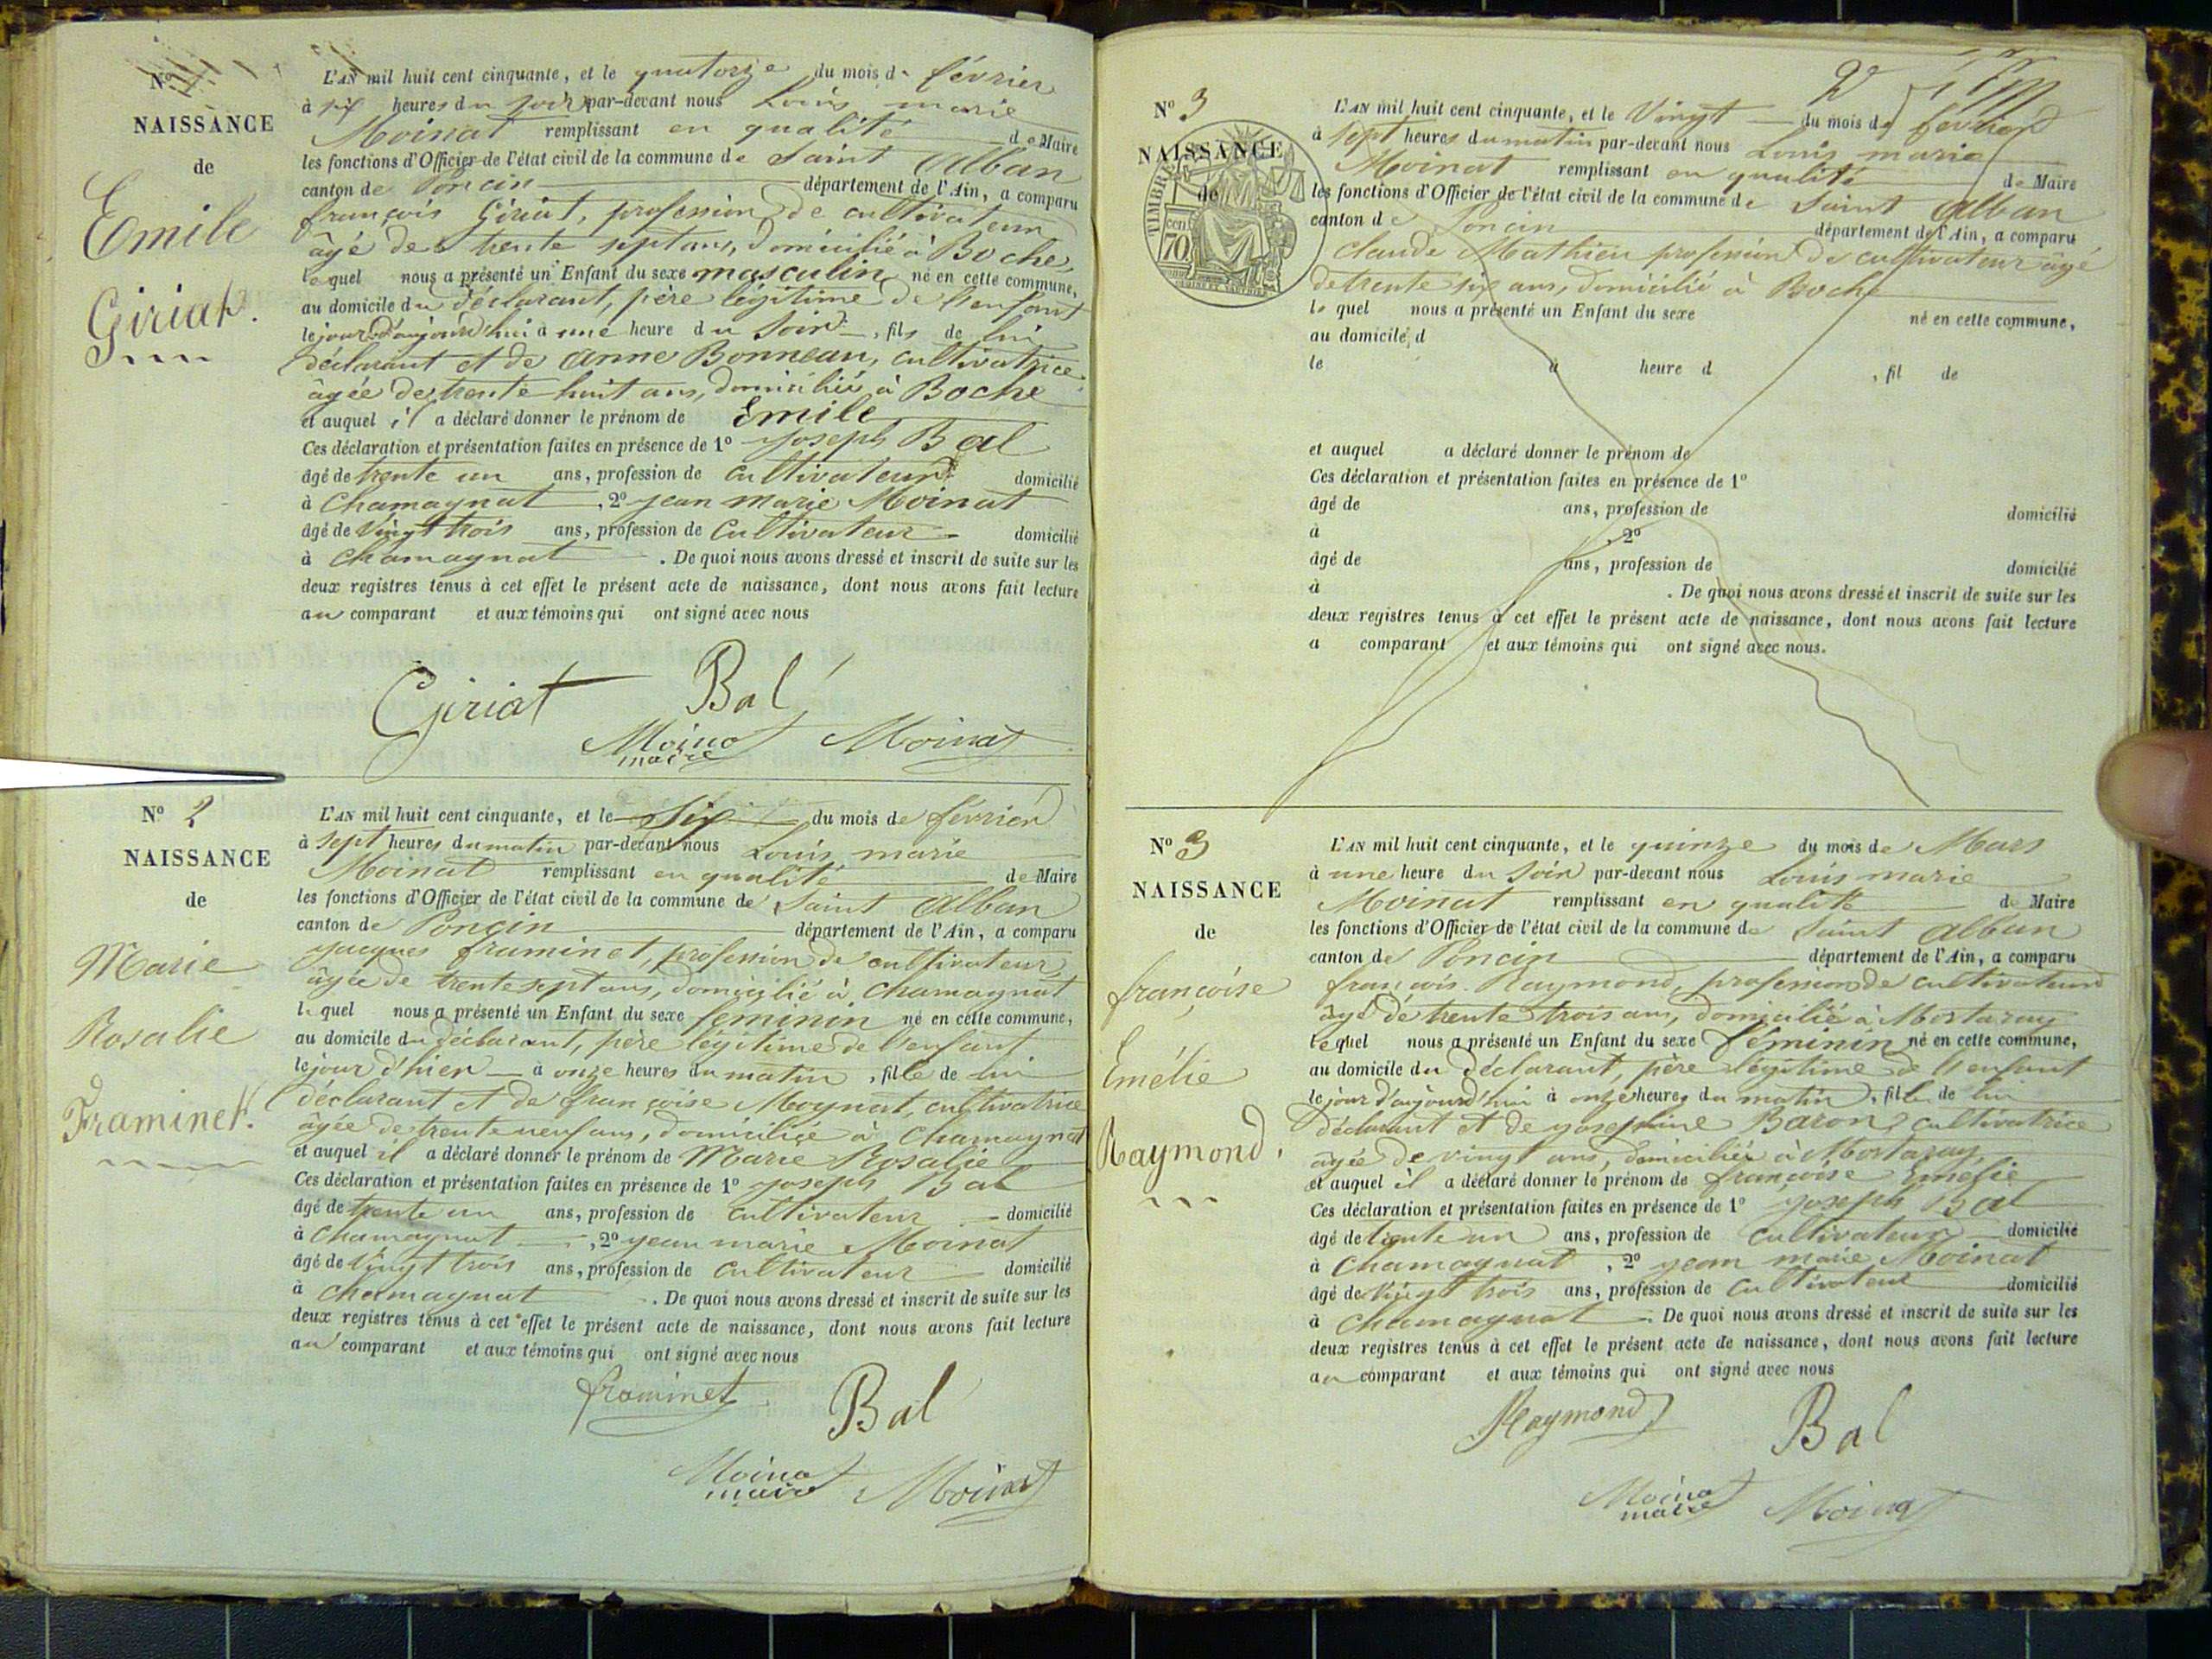 N° 1
NAISSANCE
de
Emile
Giriat.
L'AN mil huit cent cinquante, et le quatorze du mois de février
à six heures du soir par-devant nous Louis marie
Moinat remplissant en qualité de Maire
les fonctions d'Officier de l'état civil de la commune de Saint Alban
canton de Poncin département de l'Ain, a comparu
françois Giriat, profession de cultivateur
âgé de trente sept ans, domicilié à Boche,
lequel nous a présenté un Enfant du sexe masculin né en cette commune,
au domicile du déclarant, père légitime de l'enfant
le jour d'aujourd'hui à une heure du Soir, fils de lui
déclarant et de Anne Bonneau, cultivatrice
âgée de trente huit ans, domiciliée à Boche
et auquel il a déclaré donner le prénom de Emile
Ces déclaration et présentation faites en présence de 1° Joseph Bal
âgé de trente un ans, profession de cultivateur domicilié
à Chamagnat, 2° jean marie Moinat
âgé de Vingt trois ans, profession de Cultivateur domicilié
à Chamagnat. De quoi nous avons dressé et inscrit de suite sur les
deux registres tenus à cet effet le présent acte de naissance, dont nous avons fait lecture
au comparant et aux témoins qui ont signé avec nous
Giriat Bal
Moinat Moinat
maire
N° 2
NAISSANCE
de
Marie
Rosalie
Framinet.
L'AN mil huit cent cinquante, et le Six du mois de février
à Sept heures du matin par-devant nous Louis marie
Moinat remplissant en qualité de Maire
les fonctions d'Officier de l'état civil de la commune de Saint Alban
canton de Poncin département de l'Ain, a comparu
jacques framinet, profession de cultivateur
âgée de trente sept ans, domicilié à Chamagnat
lequel nous a présenté un Enfant du sexe feminin né en cette commune,
au domicile du déclarant, père légitime de l'enfant
le jour d'hier à onze heures du matin, fille de lui
déclarant et de françoise Moynat, cultivatrice
âgée de trente neuf ans, domiciliée à Chamagnat
et auquel il a déclaré donner le prénom de Marie Rosalie
Ces déclaration et présentation faites en présence de 1° Joseph Bal
âgé de trente un ans, profession de cultivateur domicilié
à Chamagnat, 2° jean marie Moinat
âgé de Vingt trois ans, profession de Cultivateur domicilié
à Chamagnat. De quoi nous avons dressé et inscrit de suite sur les
deux registres tenus à cet effet le présent acte de naissance, dont nous avons fait lecture
au comparant et aux témoins qui ont signé avec nous
framinet Bal
Moinat Moinat
maire
N° 3
NAISSANCE
de
TIMBRE
70 cen
L'AN mil huit cent cinquante, et le Vingt du mois de février
à Sept heures du matin par-devant nous Louis marie
Moinat remplissant en qualité de Maire
les fonctions d'Officier de l'état civil de la commune de Saint Alban
canton de Poncin département de l'Ain, a comparu
claude Mathieu profession de cultivateur âgé
de trente six ans, domicilié à Boche
lequel nous a présenté un Enfant du sexe né en cette commune,
au domicile d
le à heure d , fil de
et auquel a déclaré donner le prénom de
Ces déclaration et présentation faites en présence de 1°
âgé de ans, profession de domicilié
à , 2°
âgé de ans, profession de domicilié
à . De quoi nous avons dressé et inscrit de suite sur les
deux registres tenus à cet effet le présent acte de naissance, dont nous avons fait lecture
a comparant et aux témoins qui ont signé avec nous.
N° 3
NAISSANCE
de
françoise
Emélie
Raymond.
L'AN mil huit cent cinquante, et le quinze du mois de Mars
à une heure du Soir par-devant nous Louis marie
Moinat remplissant en qualité de Maire
les fonctions d'Officier de l'état civil de la commune de Saint Alban
canton de Poncin département de l'Ain, a comparu
françois Raymond, profession de cultivateur
âgé de trente trois ans, domicilié à Mortaray
lequel nous a présenté un Enfant du sexe féminin né en cette commune,
au domicile du déclarant, père légitime de l'enfant
le jour d'aujourd'hui à onze heures du matin, fille de lui
déclarant et de josephine Baron, cultivatrice
âgée de vingt ans, domiciliée à Mortaray
et auquel il a déclaré donner le prénom de françoise Emelie
Ces déclaration et présentation faites en présence de 1° Joseph Bal
âgé de trente un ans, profession de cultivateur domicilié
à Chamagnat, 2° jean marie Moinat
âgé de Vingt trois ans, profession de Cultivateur domicilié
à Chamagnat. De quoi nous avons dressé et inscrit de suite sur les
deux registres tenus à cet effet le présent acte de naissance, dont nous avons fait lecture
au comparant et aux témoins qui ont signé avec nous
Raymond Bal
Moinat Moinat
maire